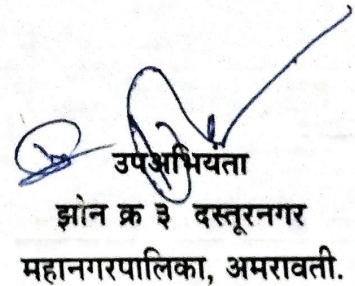 उपअभियंता
झोन क्र ३ दस्तूरनगर
महानगरपालिका, अमरावती.